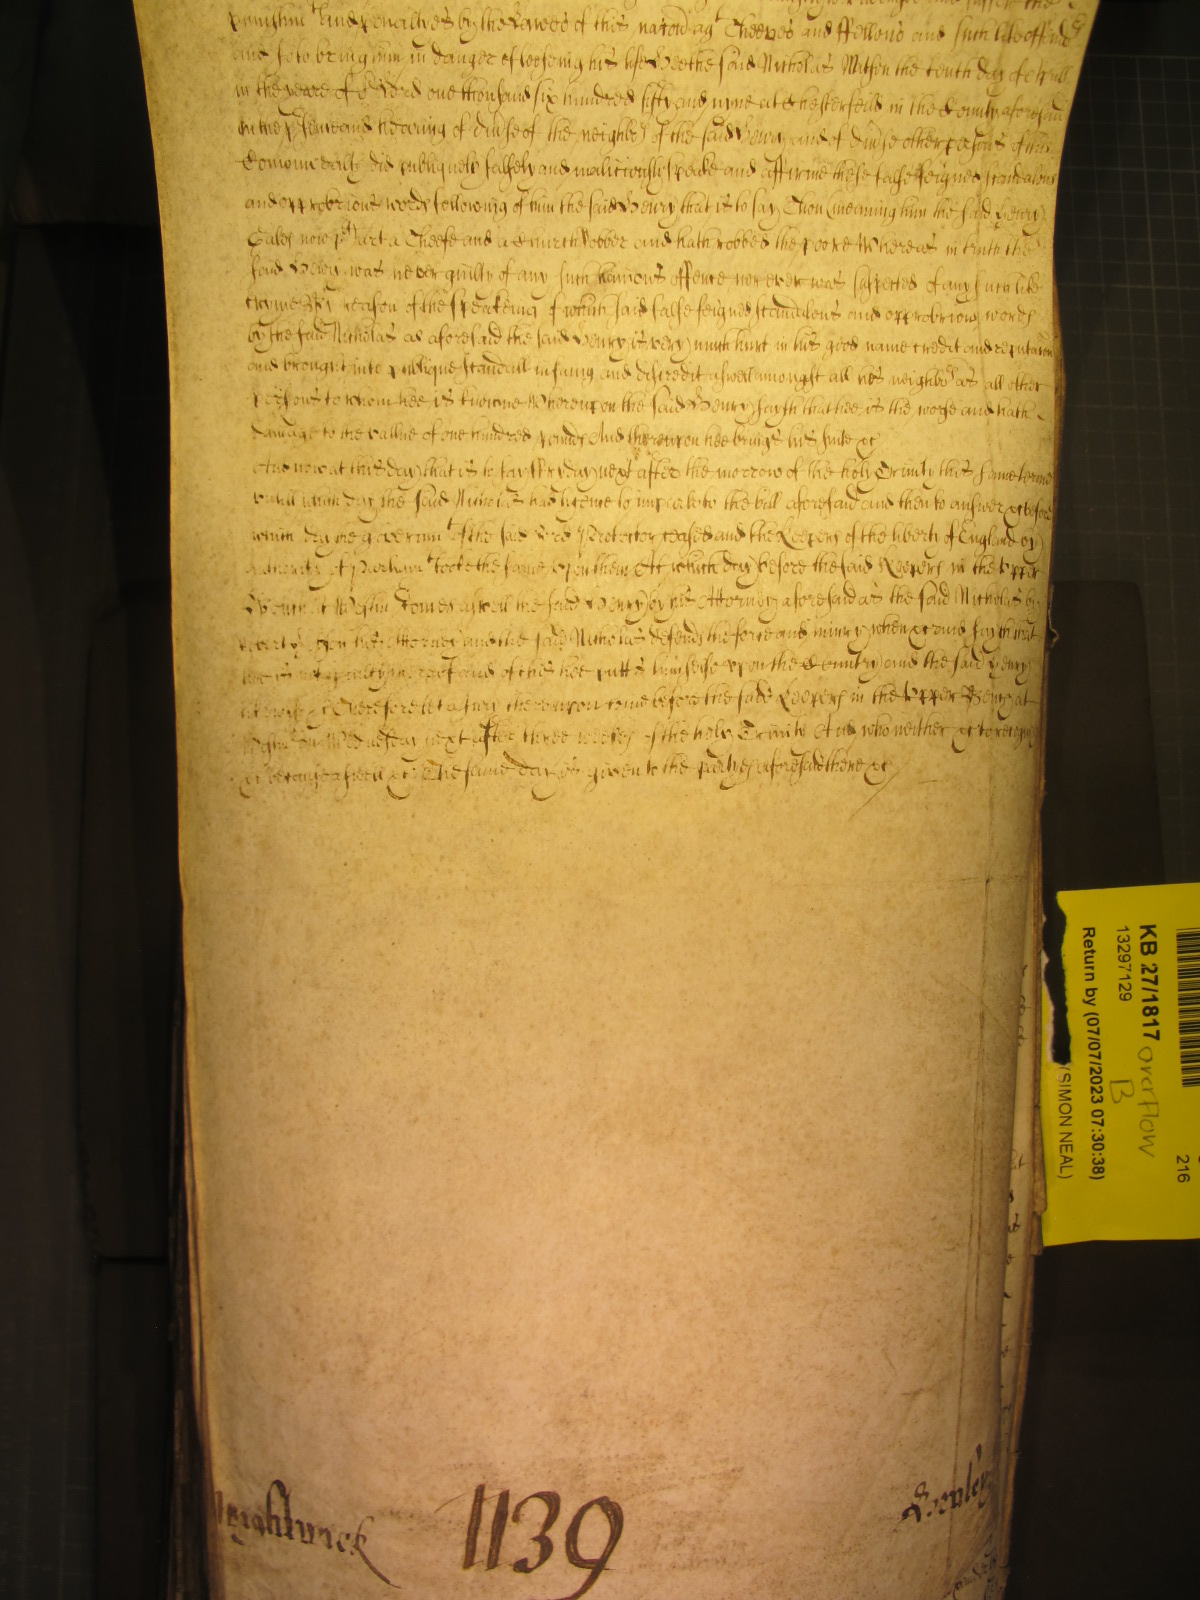 punishmt and penaltyes by the Lawes of this nation agt Theeves and ffellons and such like offend
and so to bring him in danger of looseing his life Hee the said Nicholas Mitson the tenth day of Aprill
in the yeare of or Lord one thousand six hundred fifty and nine at Chesterfeild in the County aforesaid
in the psence and hearing of divse of the neighbors of the said Henry and of divse other psons of this
Comonwealth did publiquely falsely and maliciously speake and affirme these false feigned scandalous
and opprobrious words following of him the said Henry that is to say Thou (meaning him the said Henry
Gales now pit) art a Theefe and a Church Robber and hath robbed the poore Whereas in truth the
said Henry was never guilty of any such hainous offence nor ever was suspected of any such like
cryme By reason of the speakeing of which said false feigned scandalous and opprobrious words
by the said Nicholas as aforesaid the said Henry is very much hurt in his good name credit and reputacon
and brought into publique scandall infamy and discredit aswell amongst all his neighbors as all other
persons to whom hee is knowne Whereupon the said Henry sayth that hee is the worse and hath
damage to the vallue of one hundred pounds And thereupon hee brings his suite &c
And now at this day that is to say ffryday next after the morrow of the holy Trinity this same terme
untill which day the said Nicholas had licence to imparle to the bill aforesaid and then to answer &c before
which day the governmt of the said Lord Protector ceased and the Keepers of the liberty of England by
authority of Parliamt tooke the same upon them At which day before the said Keepers in the upper
Bench at Westm Comes aswell the said Henry by his Attorney aforesaid as the said Nicholas by
his Attorney and the said Nicholas defends the force and injury when &c and sayth that
hee is not guilty thereof and of this hee putts himselfe upon the Country and the said Henry
likewise &c Therefore let a Jury thereupon come before the said Keepers in the Upper Bench at
Westm on Wednesday next after three weekes of the holy Trinity And who neither &c to recognize
&c because aswell &c The same day is given to the partyes aforesaid there &c
1139
KB 27/1817 overflow
B
13297129
Return by (07/07/2023 07:30:38)
(SIMON NEAL)
216